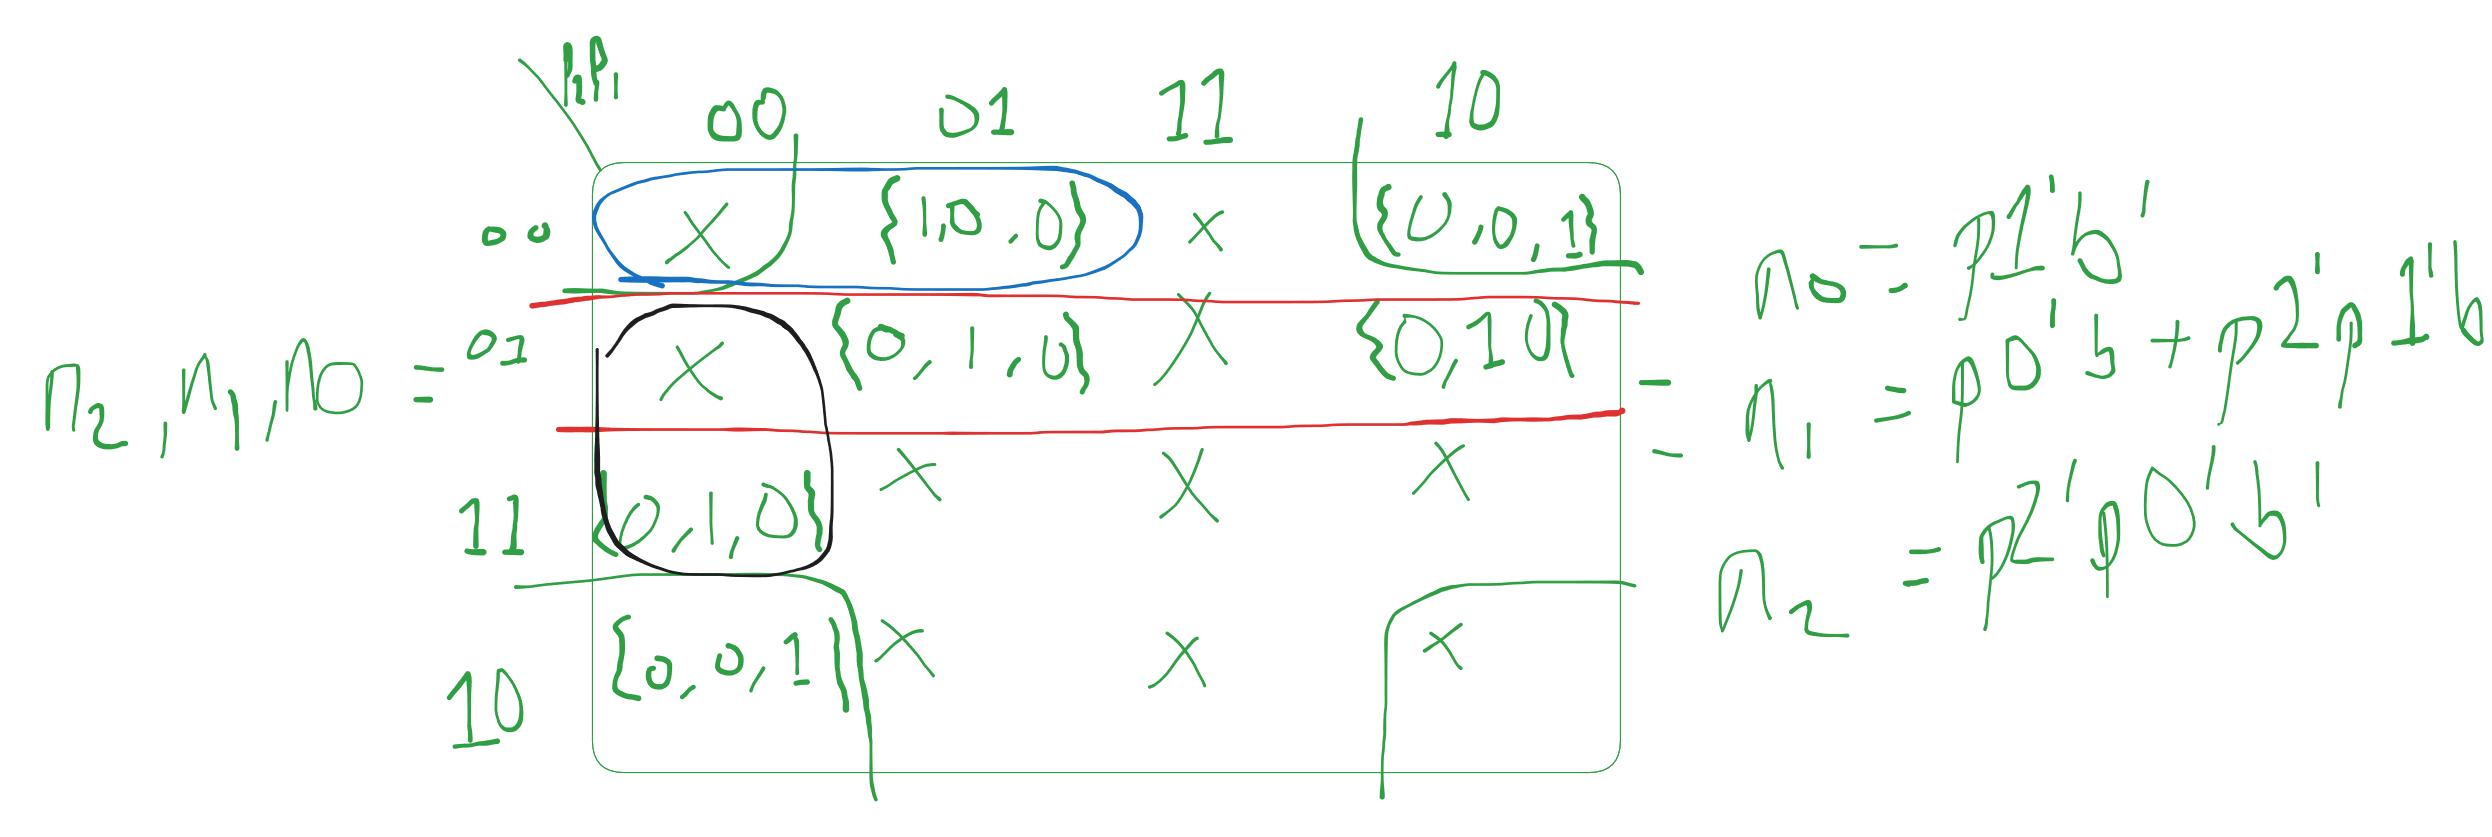 00 01 11 10
00 X {1,0,0} X {0,0,1}
01 X {0,1,0} X {0,10}
11 {0,1,0} X X X
10 {0,0,1} X X X
n2, n1, n0 =
n0 = p2'b'
n1 = p0'b + p2'p1'b
n2 = p2'p0'b'